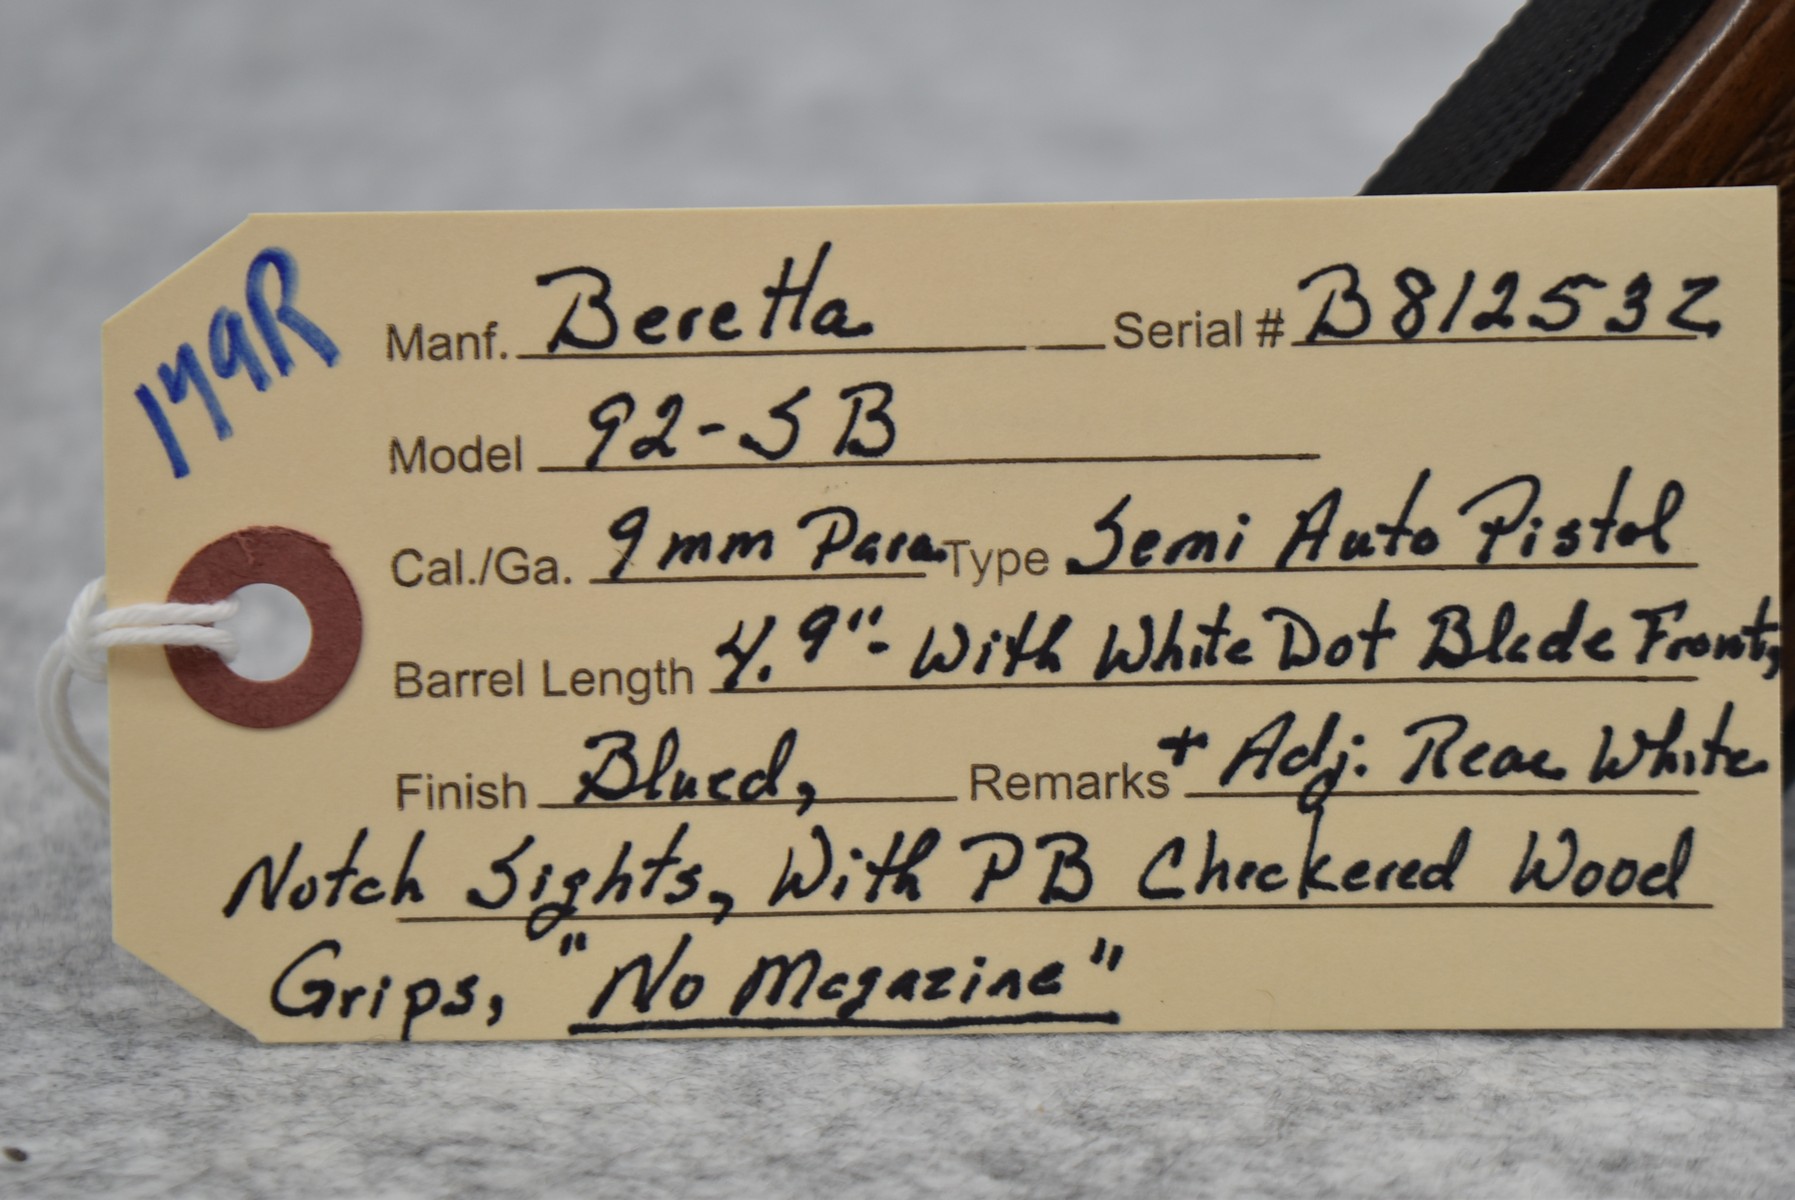 179R
Manf. Beretta Serial # B81253Z
Model 92-SB
Cal./Ga. 9mm Para. Type Semi Auto Pistol
Barrel Length 4.9"- With White Dot Blade Front,
Finish Blued, Remarks + Adj. Rear White
Notch Sights, With PB Checkered Wood
Grips, "No Magazine"